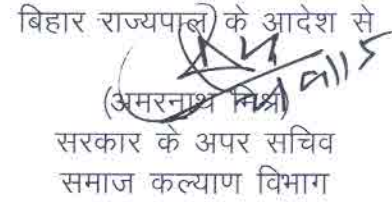 बिहार राज्यपाल के आदेश से
(अमरनाथ मिश्रा)
सरकार के अपर सचिव
समाज कल्याण विभाग